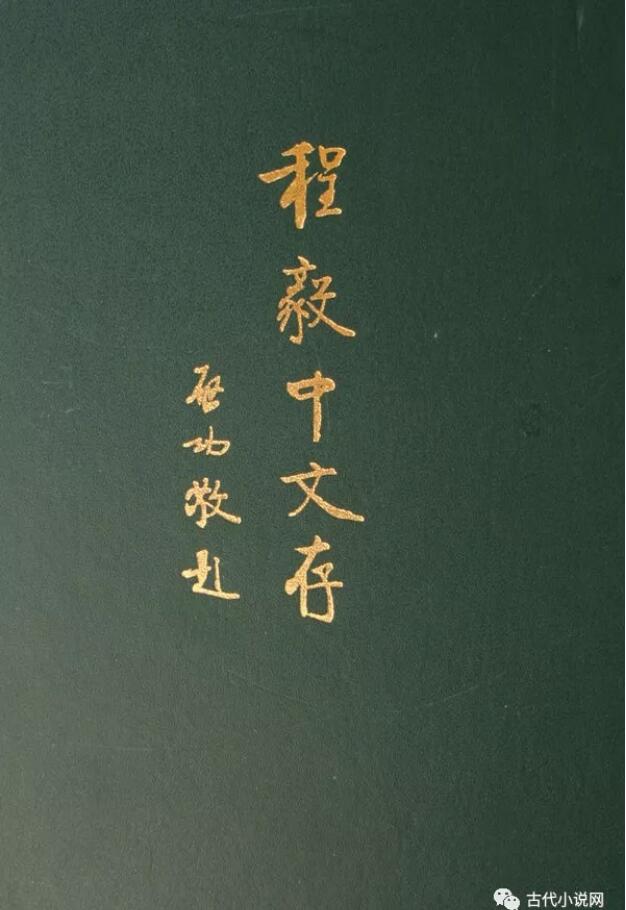 程毅中文存
启功敬题
古代小说网